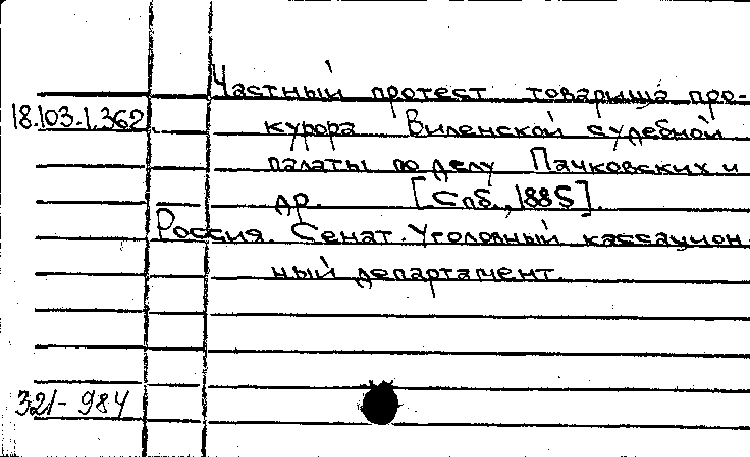 Частный протест товарища про-
18.103.1.362 курора Виленской судебной
палаты по делу Пачковских и
др. [Спб., 1885].
Россия. Сенат. Уголовный кассацион-
ный департамент.
321-984